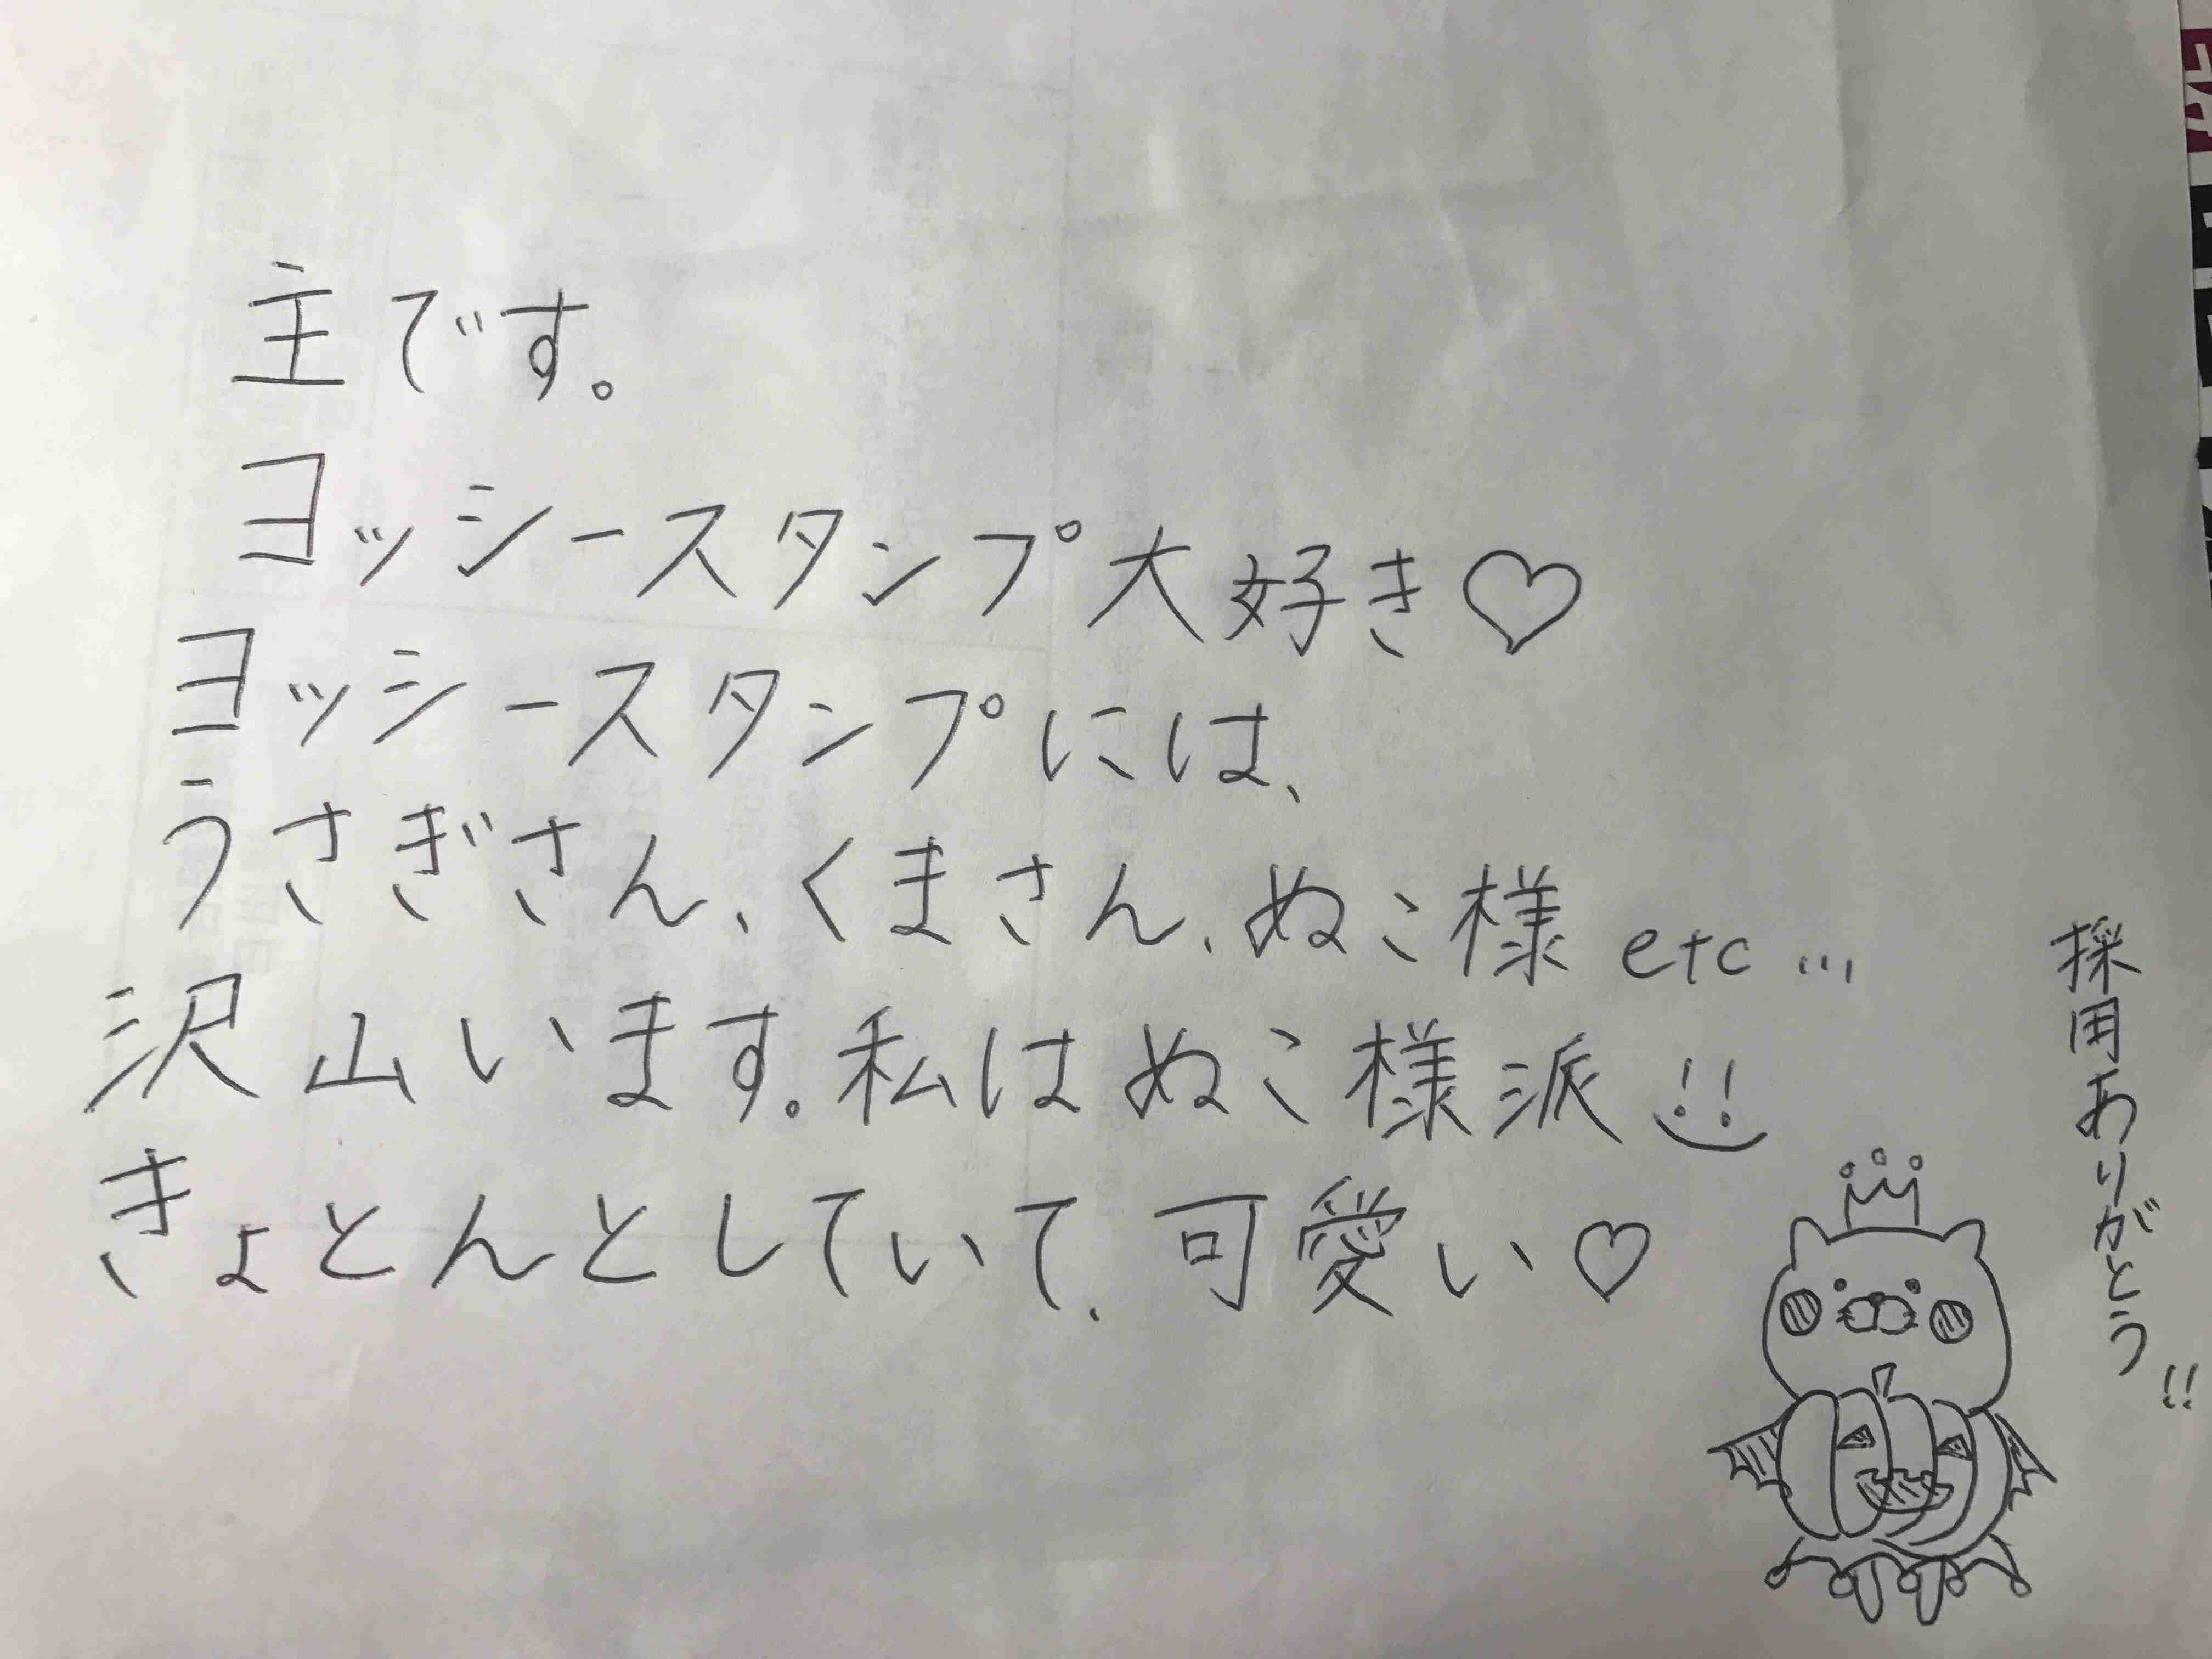 主です。
ヨッシースタンプ大好き♡
ヨッシースタンプには、
うさぎさん、くまさん、ぬこ様 etc...
沢山います。私はぬこ様派!!
きょとんとしていて、可愛い♡
採用ありがとう!!